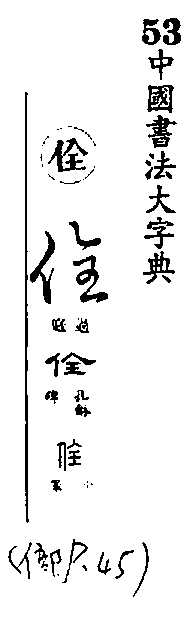 53
中國書法大字典
佺
佺
過庭
佺
孔龢碑
佺
小篆
P.45)